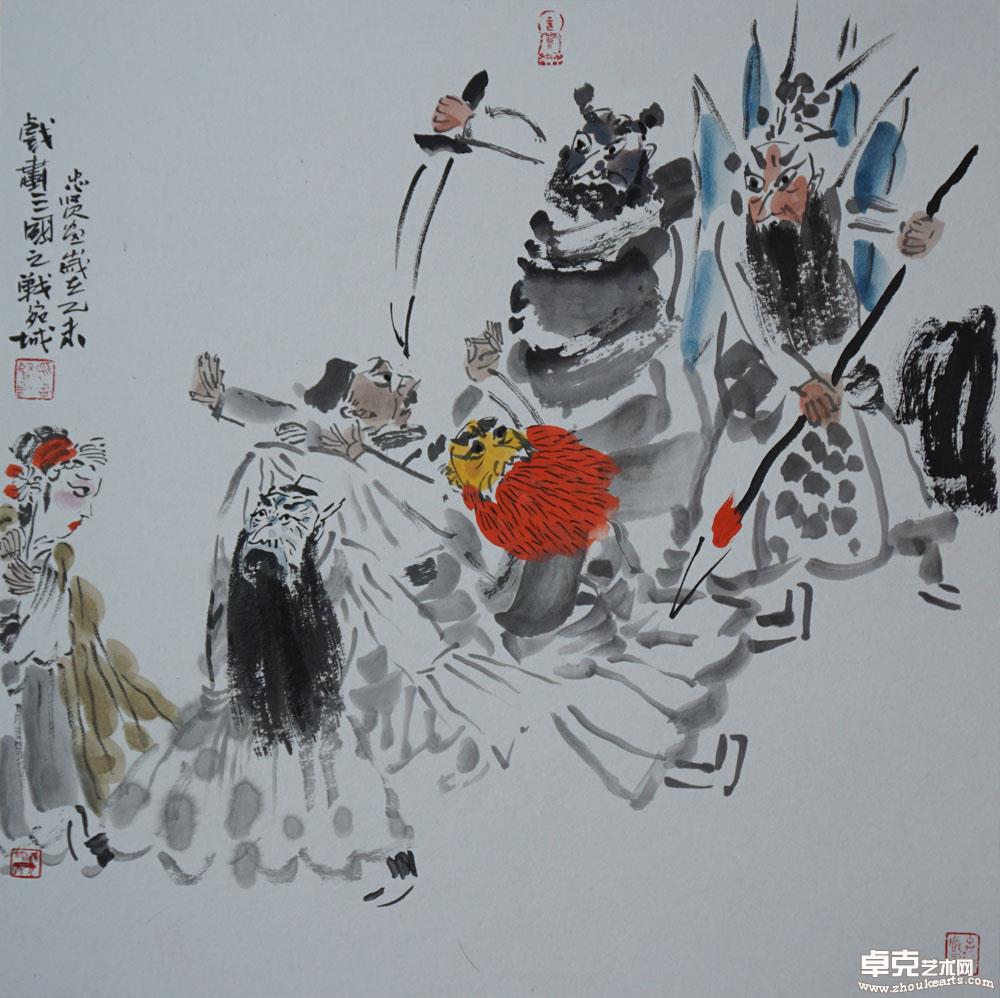 戲畫三國之戰宛城
忠贤画歲在乙未
卓克艺术网
www.zhoukearts.com